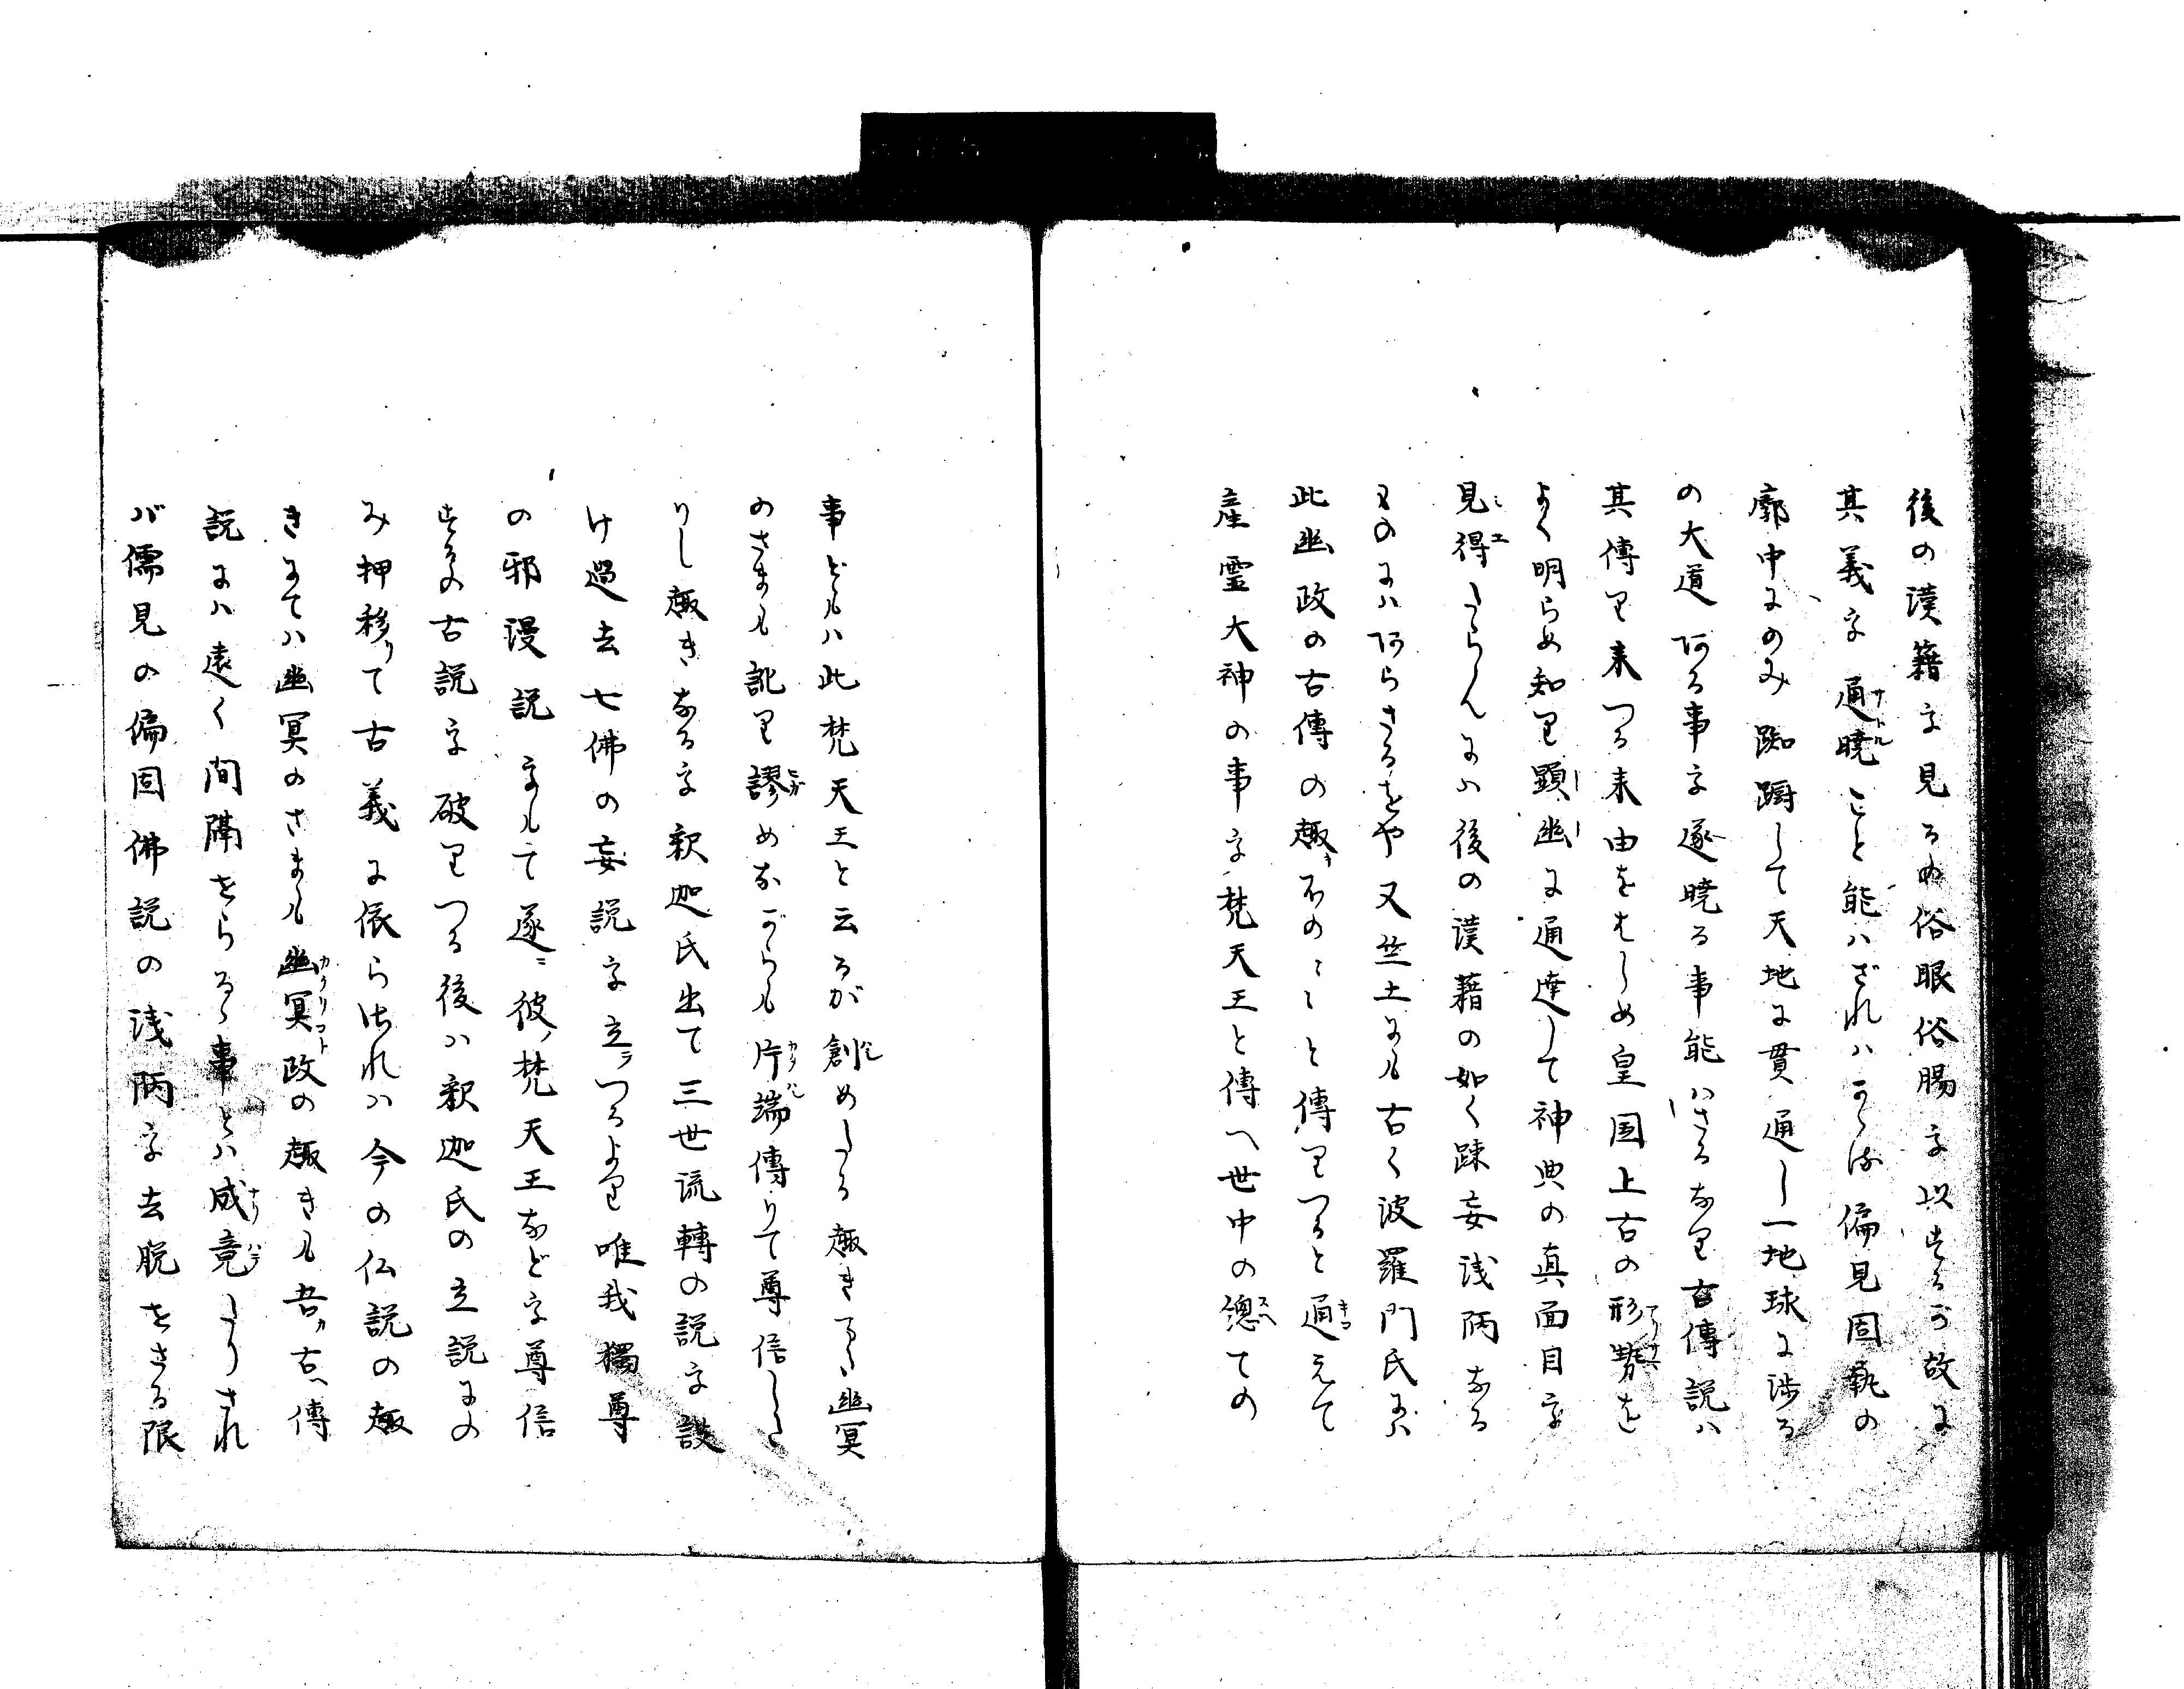 後の漢籍を見るめ俗眼俗腸を以する可故に
其義を通暁こと能ハざれハかく偏見固執の
廓中にのみ踟蹰して天地に貫通し一地球に渉る
の大道ある事を遂暁る事能ハさるなり古傳説ハ
其傳り来つる来由をはしめ皇国上古の形勢を
よく明らめ知り顕幽に通達して神典の真面目を
見得さらんにハ後の漢籍の如く疎妄浅陋なる
ものにハあらさるをや又竺土にも古く波羅門氏にハ
此幽政の古傳の趣ホのミと傳りつると通えて
産霊大神の事を梵天王と傳へ世中の總ての
事どもハ此梵天王と云るが創めしる趣きにて幽冥
のさまも訛り謬めながらも片端傳りて尊信しさ
りし趣きなるを釈迦氏出て三世流轉の説を設
け過去七佛の妄説を立つるより唯我獨尊
の邪漫説をもて遂ニ彼ノ梵天王などを尊信
する古説を破りつる後ハ釈迦氏の立説にの
み押移りて古義に依らされハ今の仏説の趣
きにてハ幽冥のさまも幽冥政の趣きも吾カ古ヘ傳
説にハ遠く間隔せらるゝ事とハ成竟たりされ
バ儒見の偏固佛説の浅陋を去脱せさる限